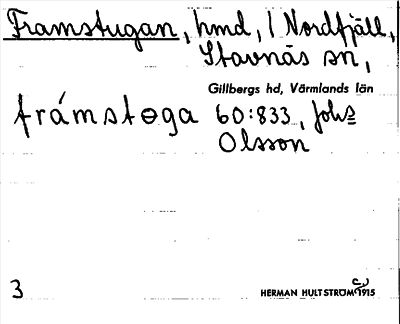 Framstugan, hmd, / Nordfjäll,
Stavnäs sn,
Gillbergs hd, Värmlands län
frámstɵga 60:833, Johs
Olsson
3
HERMAN HULTSTRÖM 1915